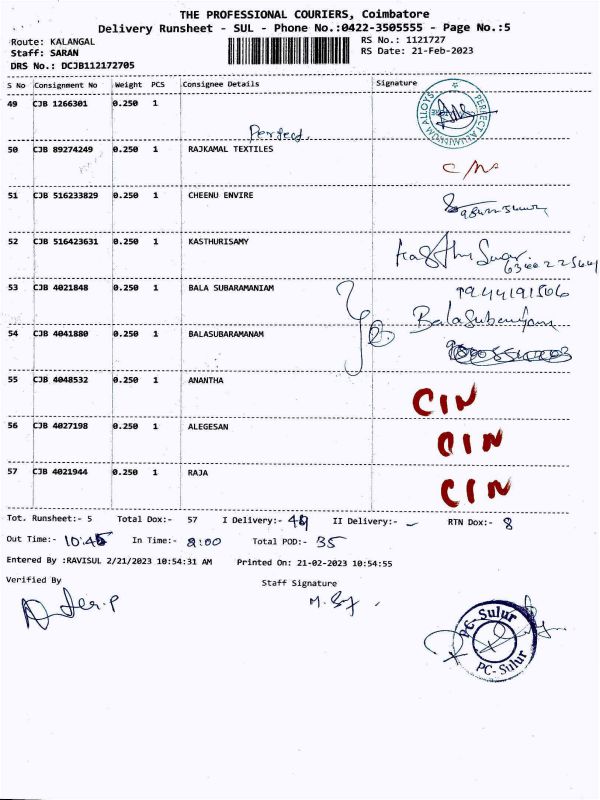 THE PROFESSIONAL COURIERS, Coimbatore
Delivery Runsheet - SUL - Phone No.:0422-3505555 - Page No.:5
Route: KALANGAL RS No.: 1121727
Staff: SARAN RS Date: 21-Feb-2023
DRS No.: DCJB112172705
S No Consignment No Weight PCS Consignee Details Signature
49 CJB 1266301 0.250 1
PERFECT ALUMINIUM ALLOYS
Perfect.
50 CJB 89274249 0.250 1 RAJKAMAL TEXTILES
51 CJB 516233829 0.250 1 CHEENU ENVIRE
52 CJB 516423631 0.250 1 KASTHURISAMY
53 CJB 4021848 0.250 1 BALA SUBARAMANIAM 9944191566
54 CJB 4041880 0.250 1 BALASUBARAMANAM
55 CJB 4048532 0.250 1 ANANTHA CIN
56 CJB 4027198 0.250 1 ALEGESAN CIN
57 CJB 4021944 0.250 1 RAJA CIN
Tot. Runsheet:- 5 Total Dox:- 57 I Delivery:- 49 II Delivery:- - RTN Dox:- 8
Out Time:- 10:45 In Time:- 8:00 Total POD:- 35
Entered By :RAVISUL 2/21/2023 10:54:31 AM Printed On: 21-02-2023 10:54:55
Verified By Staff Signature
PC-Sulur
PC-Sulur